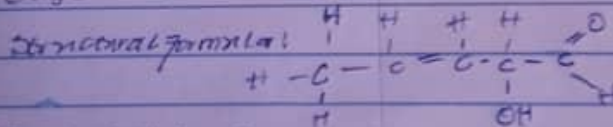 Structural formula:
H H H H O
H - C - C = C - C - C
H OH H